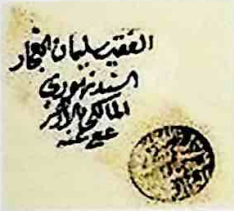 الفقير سليمان النجار
السندنهوري
المالكي بالأزهر
عفي عنه